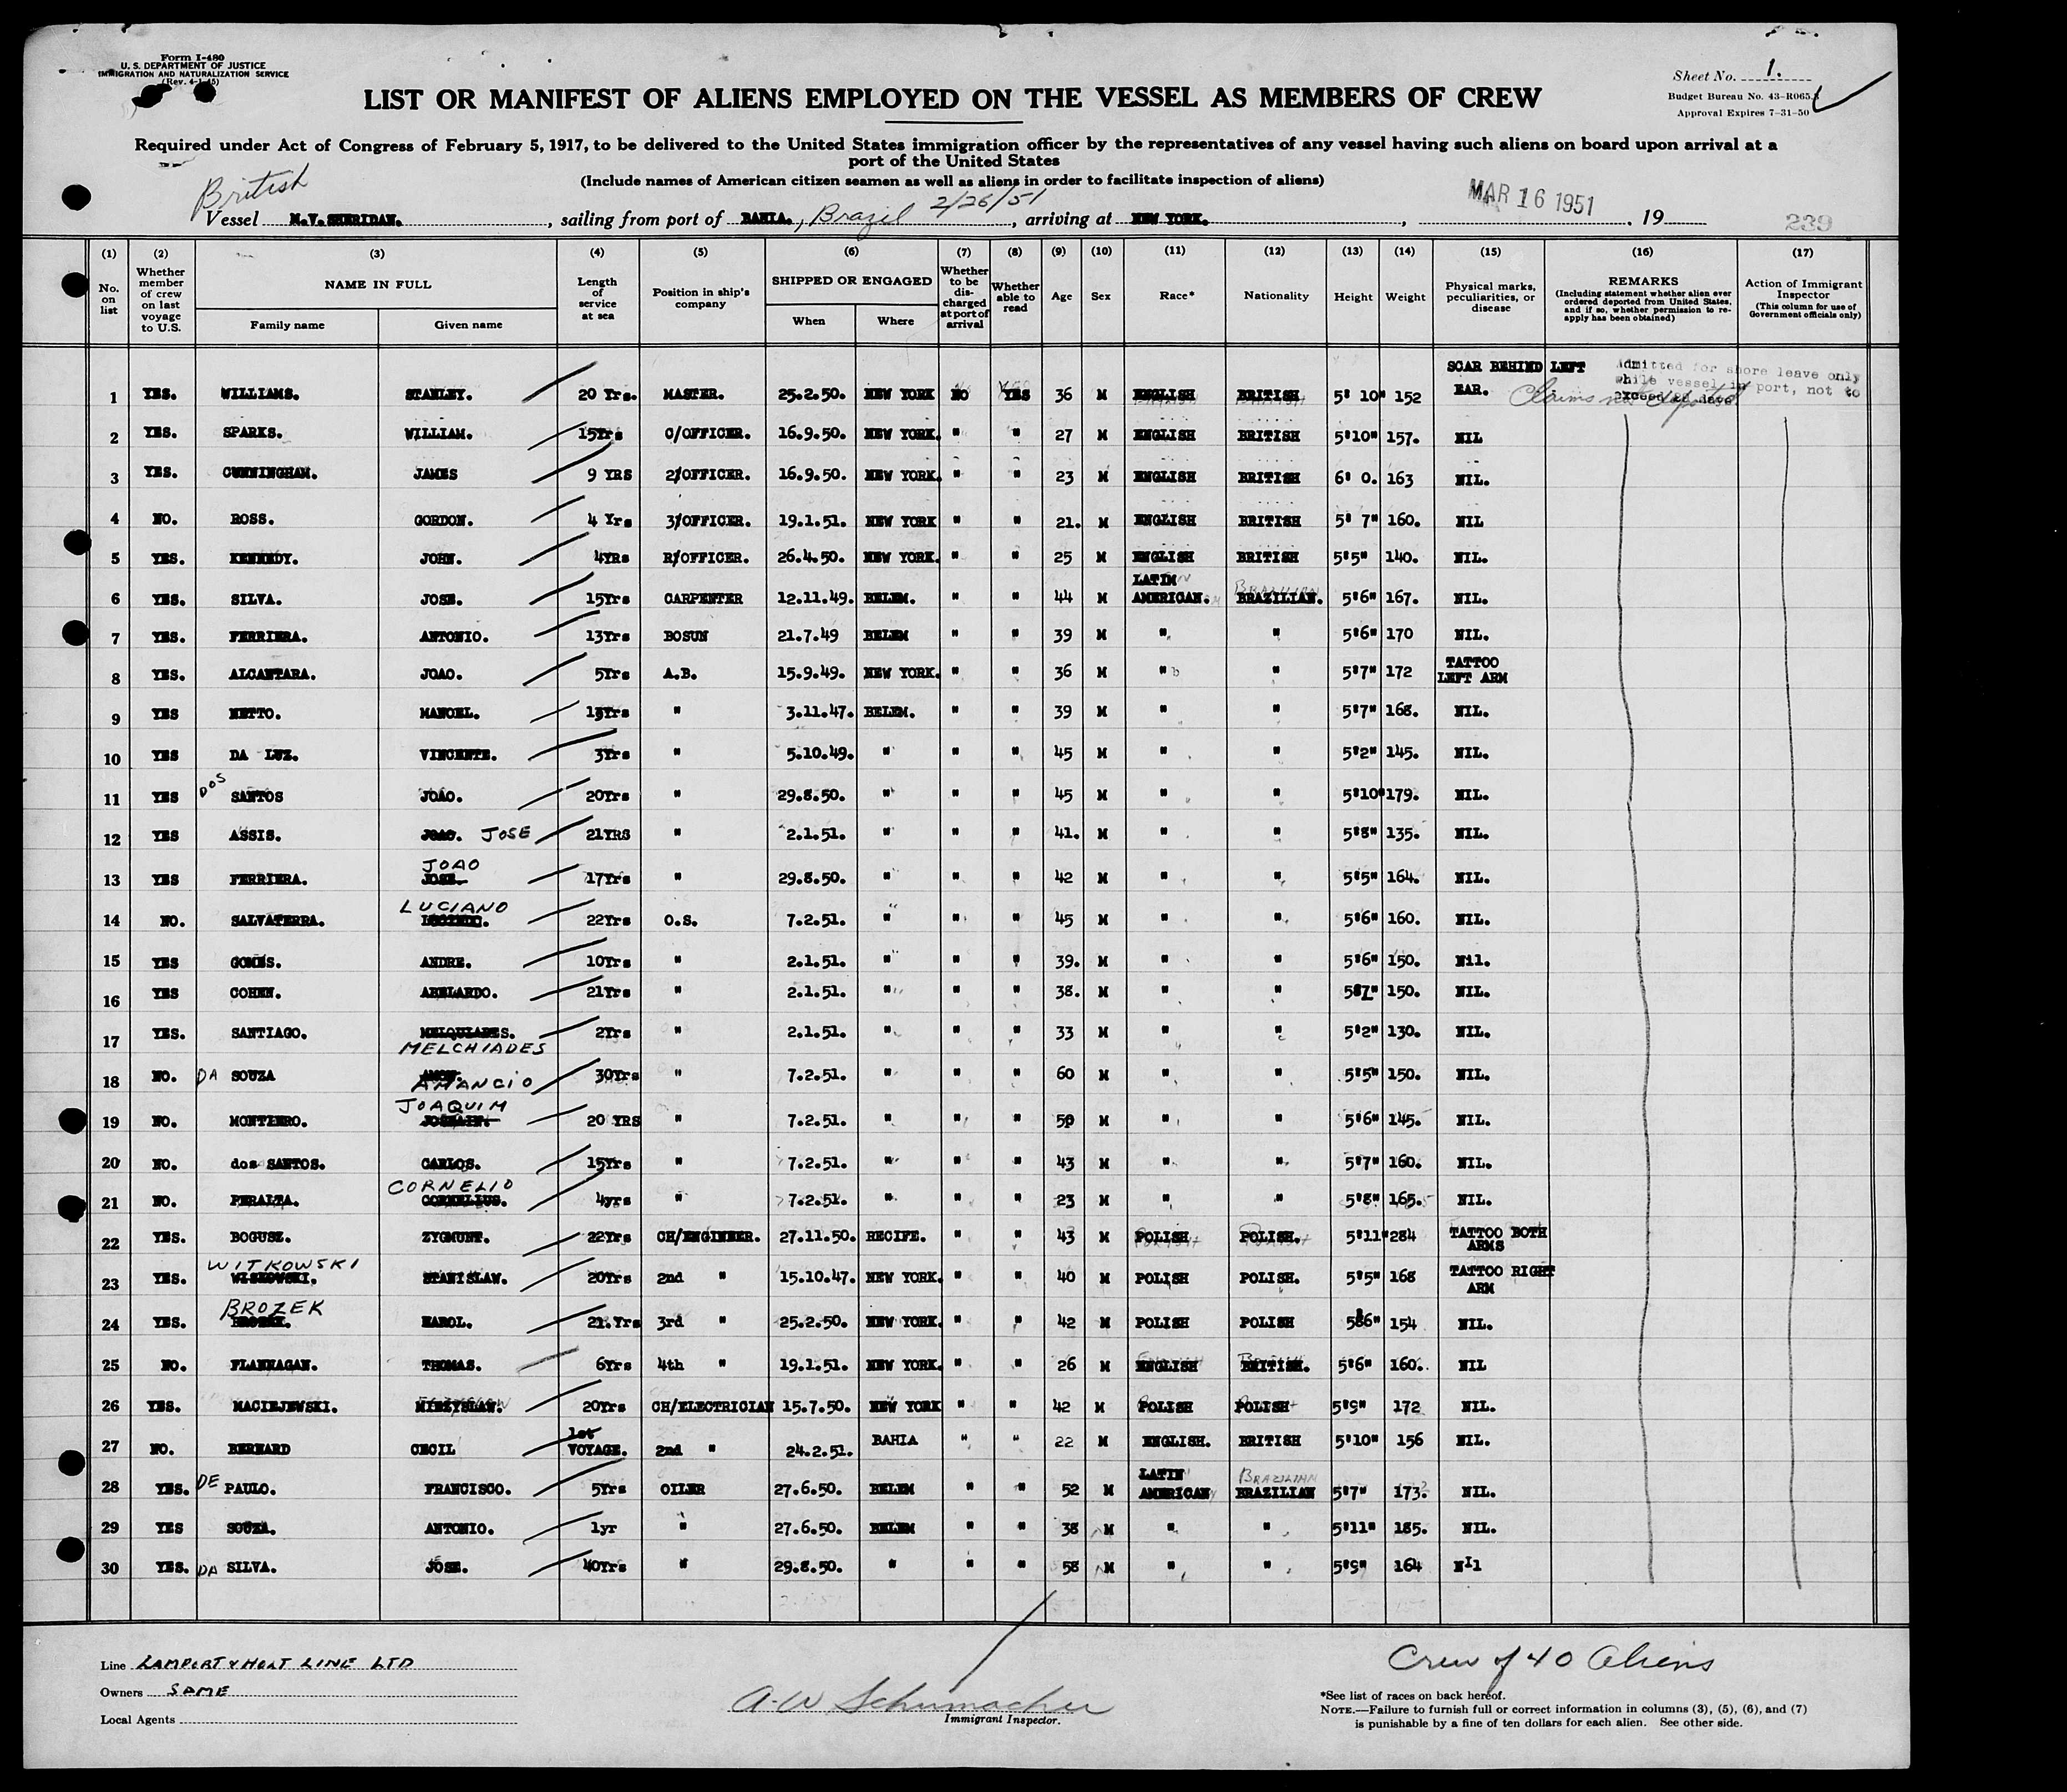 Form I-480
U. S. DEPARTMENT OF JUSTICE
IMMIGRATION AND NATURALIZATION SERVICE
(Rev. 4-1-45)
Sheet No. 1.
Budget Bureau No. 43-R065.
Approval Expires 7-31-50
LIST OR MANIFEST OF ALIENS EMPLOYED ON THE VESSEL AS MEMBERS OF CREW
Required under Act of Congress of February 5, 1917, to be delivered to the United States immigration officer by the representatives of any vessel having such aliens on board upon arrival at a
port of the United States
(Include names of American citizen seamen as well as aliens in order to facilitate inspection of aliens)
British
Vessel M.V. SHERIDAN. , sailing from port of BAHIA., Brazil 2/26/51 , arriving at NEW YORK. , MAR 16 1951 , 19 239
(1) No. on list (2) Whether member of crew on last voyage to U.S. (3) NAME IN FULL Family name Given name (4) Length of service at sea (5) Position in ship's company (6) SHIPPED OR ENGAGED When Where (7) Whether to be discharged at port of arrival (8) Whether able to read (9) Age (10) Sex (11) Race* (12) Nationality (13) Height (14) Weight (15) Physical marks, peculiarities, or disease (16) REMARKS (Including statement whether alien ever ordered deported from United States, and if so, whether permission to re-apply has been obtained) (17) Action of Immigrant Inspector (This column for use of Government officials only)
1 YES. WILLIAMS. STANLEY. 20 Yrs. MASTER. 25.2.50. NEW YORK NO YES 36 M ENGLISH BRITISH 5' 10" 152 SCAR BEHIND LEFT EAR. Claims not deported Admitted for shore leave only while vessel in port, not to exceed days
2 YES. SPARKS. WILLIAM. 15Yrs C/OFFICER. 16.9.50. NEW YORK. " " 27 M ENGLISH BRITISH 5'10" 157. NIL
3 YES. CUNNINGHAM. JAMES 9 YRS 2/OFFICER. 16.9.50. NEW YORK. " " 23 M ENGLISH BRITISH 6' 0. 163 NIL.
4 NO. ROSS. GORDON. 4 Yrs 3/OFFICER. 19.1.51. NEW YORK " " 21. M ENGLISH BRITISH 5' 7" 160. NIL
5 YES. KENNEDY. JOHN. 4YRs R/OFFICER. 26.4.50. NEW YORK. " " 25 M ENGLISH BRITISH 5'5" 140. NIL.
6 YES. SILVA. JOSE. 15Yrs CARPENTER 12.11.49. BELEM. " " 44 M LATIN AMERICAN. BRAZILIAN. 5'6" 167. NIL.
7 YES. FERRIERA. ANTONIO. 13Yrs BOSUN 21.7.49 BELEM " " 39 M " " 5'6" 170 NIL.
8 YES. ALCANTARA. JOAO. 5Yrs A.B. 15.9.49. NEW YORK. " " 36 M " " 5'7" 172 TATTOO LEFT ARM
9 YES NETTO. MANOEL. 13Yrs " 3.11.47. BELEM. " " 39 M " " 5'7" 168. NIL.
10 YES DA LUZ. VINCENTE. 3Yrs " 5.10.49. " " " 45 M " " 5'2" 145. NIL.
11 YES DOS SANTOS JOAO. 20Yrs " 29.8.50. " " " 45 M " " 5'10" 179. NIL.
12 YES ASSIS. JOAO. JOSE 21YRS " 2.1.51. " " " 41. M " " 5'8" 135. NIL.
13 YES FERRIERA. JOSE. JOAO 17Yrs " 29.8.50. " " " 42 M " " 5'5" 164. NIL.
14 NO. SALVATERRA. LUCIANO 22Yrs O.S. 7.2.51. " " " 45 M " " 5'6" 160. NIL.
15 YES GOMES. ANDRE. 10Yrs " 2.1.51. " " " 39. M " " 5'6" 150. Nil.
16 YES COHEN. ABELARDO. 21Yrs " 2.1.51. " " " 38. M " " 5'7" 150. NIL.
17 YES. SANTIAGO. MELQUIADES. MELCHIADES 2Yrs " 2.1.51. " " " 33 M " " 5'2" 130. NIL.
18 NO. DA SOUZA AMANCIO 30Yrs " 7.2.51. " " " 60 M " " 5'5" 150. NIL.
19 NO. MONTIERO. JOAQUIM 20 YRS " 7.2.51. " " " 50 M " " 5'6" 145. NIL.
20 NO. dos SANTOS. CARLOS. 15Yrs " 7.2.51. " " " 43 M " " 5'7" 160. NIL.
21 NO. PERALTA. CORNELIUS. CORNELIO 4yrs " 7.2.51. " " " 23 M " " 5'8" 165. NIL.
22 YES. BOGUSZ. ZYGMUNT. 22Yrs CH/ENGINEER. 27.11.50. RECIFE. " " 43 M POLISH POLISH. 5'11" 284 TATTOO BOTH ARMS
23 YES. WITKOWSKI STANISLAW. 20Yrs 2nd " 15.10.47. NEW YORK. " " 40 M POLISH POLISH. 5'5" 168 TATTOO RIGHT ARM
24 YES. BROZEK KAROL. 21.Yrs 3rd " 25.2.50. NEW YORK. " " 42 M POLISH POLISH 5'6" 154 NIL.
25 NO. FLANNAGAN. THOMAS. 6Yrs 4th " 19.1.51. NEW YORK. " " 26 M ENGLISH BRITISH. 5'6" 160. NIL
26 YES. MACIEJEWSKI. MIEZYSLAW. 20Yrs CH/ELECTRICIAN 15.7.50. NEW YORK " " 42 M POLISH POLISH 5'9" 172 NIL.
27 NO. BERNARD CECIL 1st VOYAGE. 2nd " 24.2.51. BAHIA " " 22 M ENGLISH. BRITISH 5'10" 156 NIL.
28 YES. DE PAULO. FRANCISCO. 5Yrs OILER 27.6.50. BELEM " " 52 M LATIN AMERICAN BRAZILIAN 5'7" 173. NIL.
29 YES SOUZA. ANTONIO. 1yr " 27.6.50. BELEM " " 38 M " " 5'11" 185. NIL.
30 YES. DA SILVA. JOSE. 40Yrs " 29.8.50. " " " 58 M " " 5'9" 164 NIl
Line LAMPORT & HOLT LINE LTD
Owners SAME
Local Agents
A-W Schumacher
Immigrant Inspector.
Crew of 40 Aliens
*See list of races on back hereof.
NOTE.—Failure to furnish full or correct information in columns (3), (5), (6), and (7)
is punishable by a fine of ten dollars for each alien. See other side.